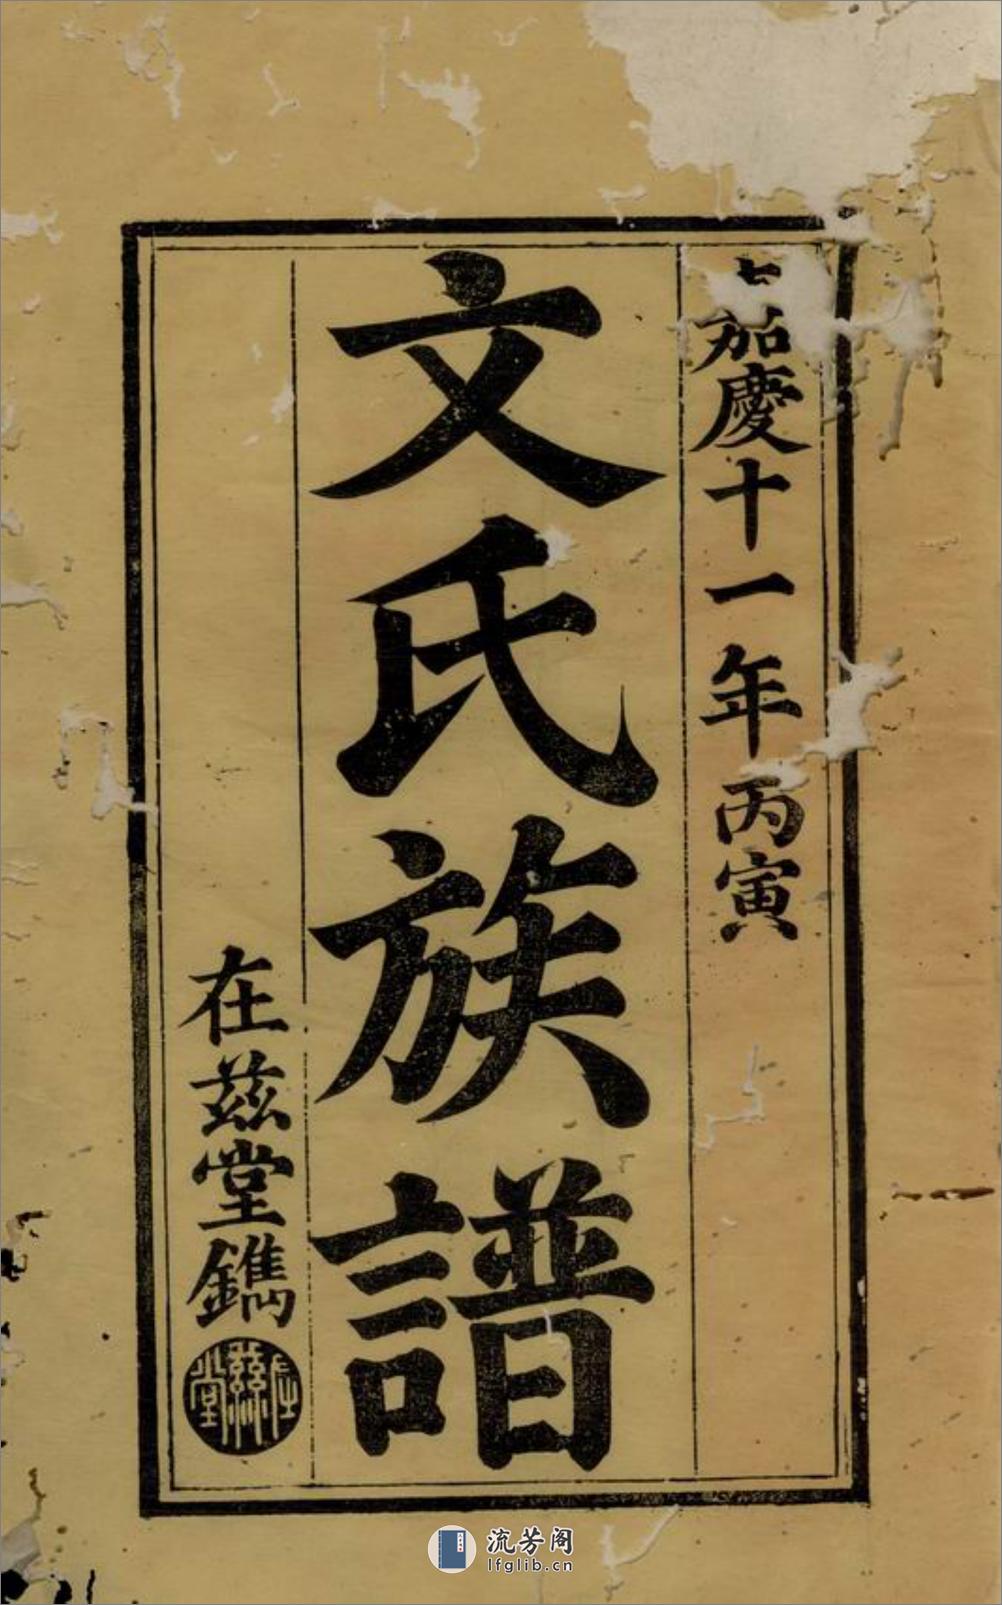 嘉慶十一年丙寅
文氏族譜
在茲堂鐫
在茲堂
流芳阁
lfglib.cn